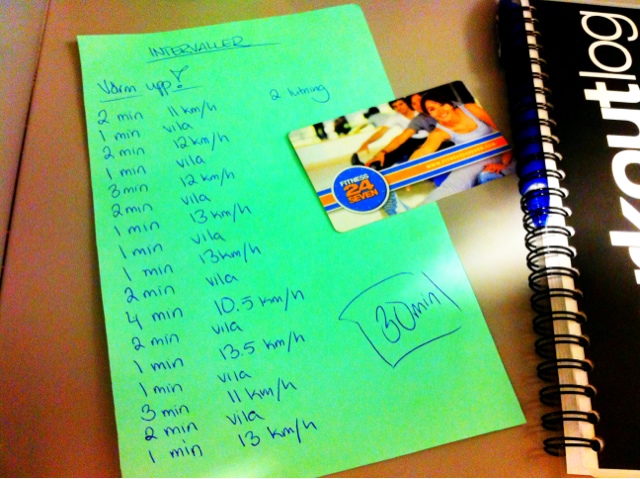 INTERVALLER
Värm upp!
2 lutning
2 min 11 km/h
1 min vila
2 min 12 km/h
1 min vila
3 min 12 km/h
2 min vila
1 min 13 km/h
1 min vila
1 min 13 km/h
2 min vila
4 min 10.5 km/h
2 min vila
1 min 13.5 km/h
1 min vila
3 min 11 km/h
2 min vila
1 min 13 km/h
30 min
FITNESS
24
SEVEN
rkoutlog